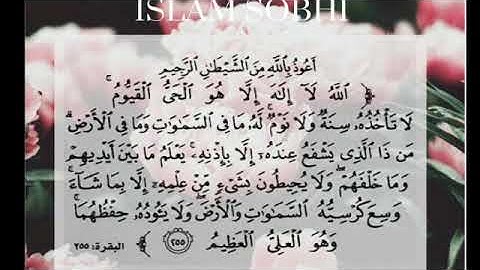 ISLAM SOBHI
أَعُوذُ بِاللَّهِ مِنَ الشَّيْطَانِ الرَّجِيمِ
﴿ اللَّهُ لَآ إِلَٰهَ إِلَّا هُوَ الْحَيُّ الْقَيُّومُ ۚ
لَا تَأْخُذُهُۥ سِنَةٌ وَلَا نَوْمٌ ۚ لَّهُۥ مَا فِي السَّمَٰوَٰتِ وَمَا فِي الْأَرْضِ ۗ
مَن ذَا الَّذِي يَشْفَعُ عِندَهُۥٓ إِلَّا بِإِذْنِهِۦ ۚ يَعْلَمُ مَا بَيْنَ أَيْدِيهِمْ
وَمَا خَلْفَهُمْ ۖ وَلَا يُحِيطُونَ بِشَيْءٍ مِّنْ عِلْمِهِۦٓ إِلَّا بِمَا شَآءَ ۚ
وَسِعَ كُرْسِيُّهُ السَّمَٰوَٰتِ وَالْأَرْضَ ۖ وَلَا يَـُٔودُهُۥ حِفْظُهُمَا ۚ
وَهُوَ الْعَلِيُّ الْعَظِيمُ ٢٥٥ ﴾ البقرة: ٢٥٥